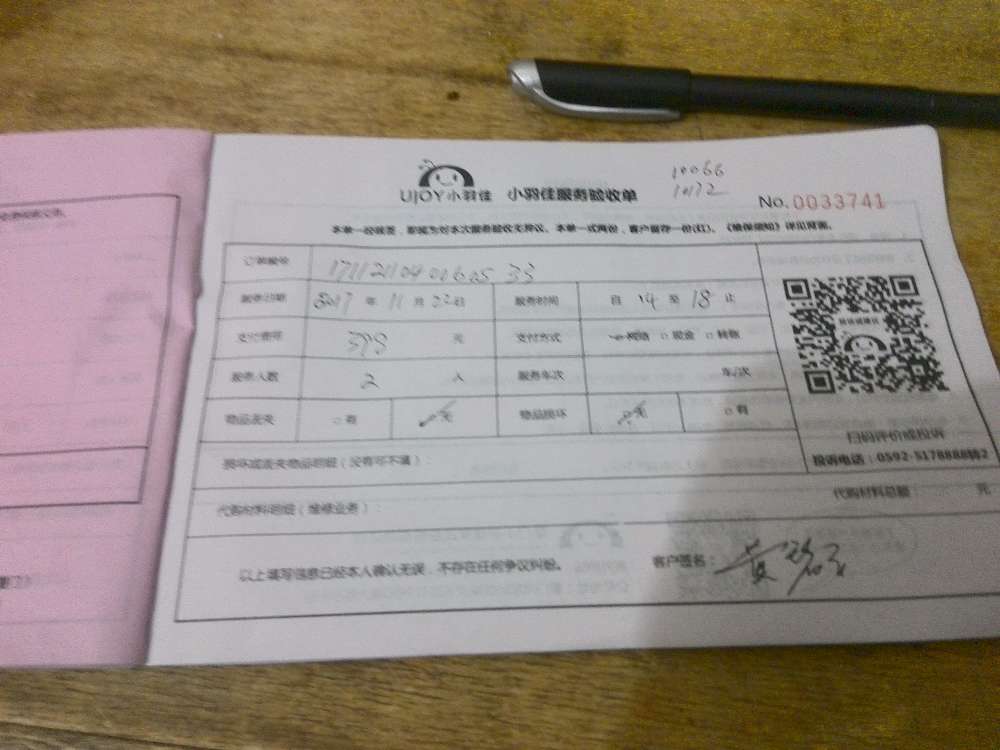 10066
1012
UJOY小羽佳 小羽佳服务验收单
No. 0033741
本单一经签署，即视为对本次服务验收无异议。本单一式两份，客户留存一份(红)。《维保须知》详见背面。
订单编号
服务日期 2017 年 11 月 22 日 服务时间 自 14 至 18 止
支付费用 元 支付方式 网络 □ 现金 □ 转账
服务人数 2 人 服务车次 车/次
物品丢失 □ 有 ✓ 无 物品损坏 ✓ 无 □ 有
损坏或丢失物品明细（没有可不填）：
扫码评价或投诉
投诉电话：0592-5178888转2
代购材料明细（维修业务）：
代购材料总额： 元
以上填写信息已经本人确认无误，不存在任何争议纠纷。 客户签名：